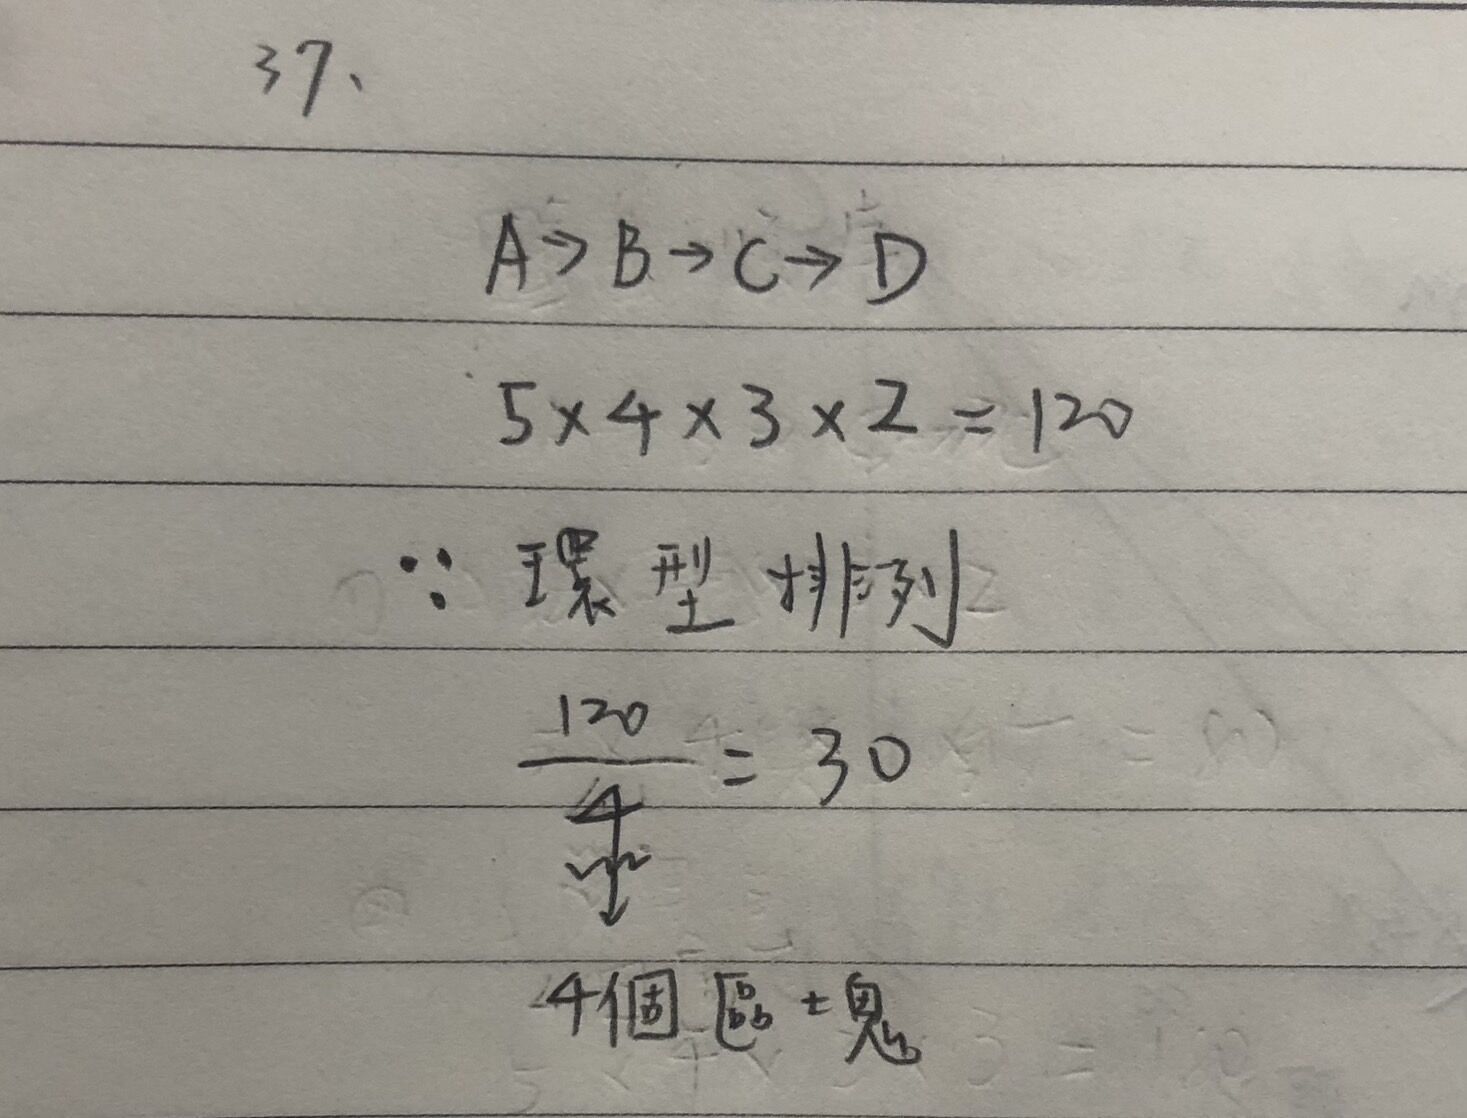 37、
A→B→C→D
5×4×3×2=120
∵環型排列
120/4=30
4個區塊